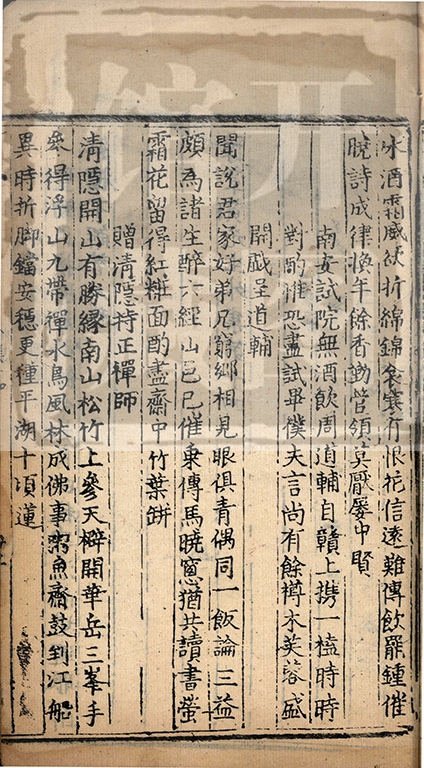 酒霜威欲折綿錦衾寒有恨花信遠難傳飲罷鍾催
曉詩成律換年餘香勤管領莫厭屢中賢
南安試院無酒飲周道輔自贛上携一榼時時
對酌惟恐盡試畢僕夫言尚有餘樽木芙蓉盛
開戯呈道輔
聞說君家好弟兄窮鄉相見眼俱青偶同一飯論三益
頗為諸生醉六經山邑已催乗傳馬曉窓猶共讀書螢
霜花留得紅粧面酌盡齋中竹葉缾
贈清隱持正禪師
清隱開山有勝縁南山松竹上參天擗開華岳三峯手
參得浮山九帶禪水鳥風林成佛事粥魚齋鼓到江船
異時折脚鐺安穩更種平湖十頃蓮